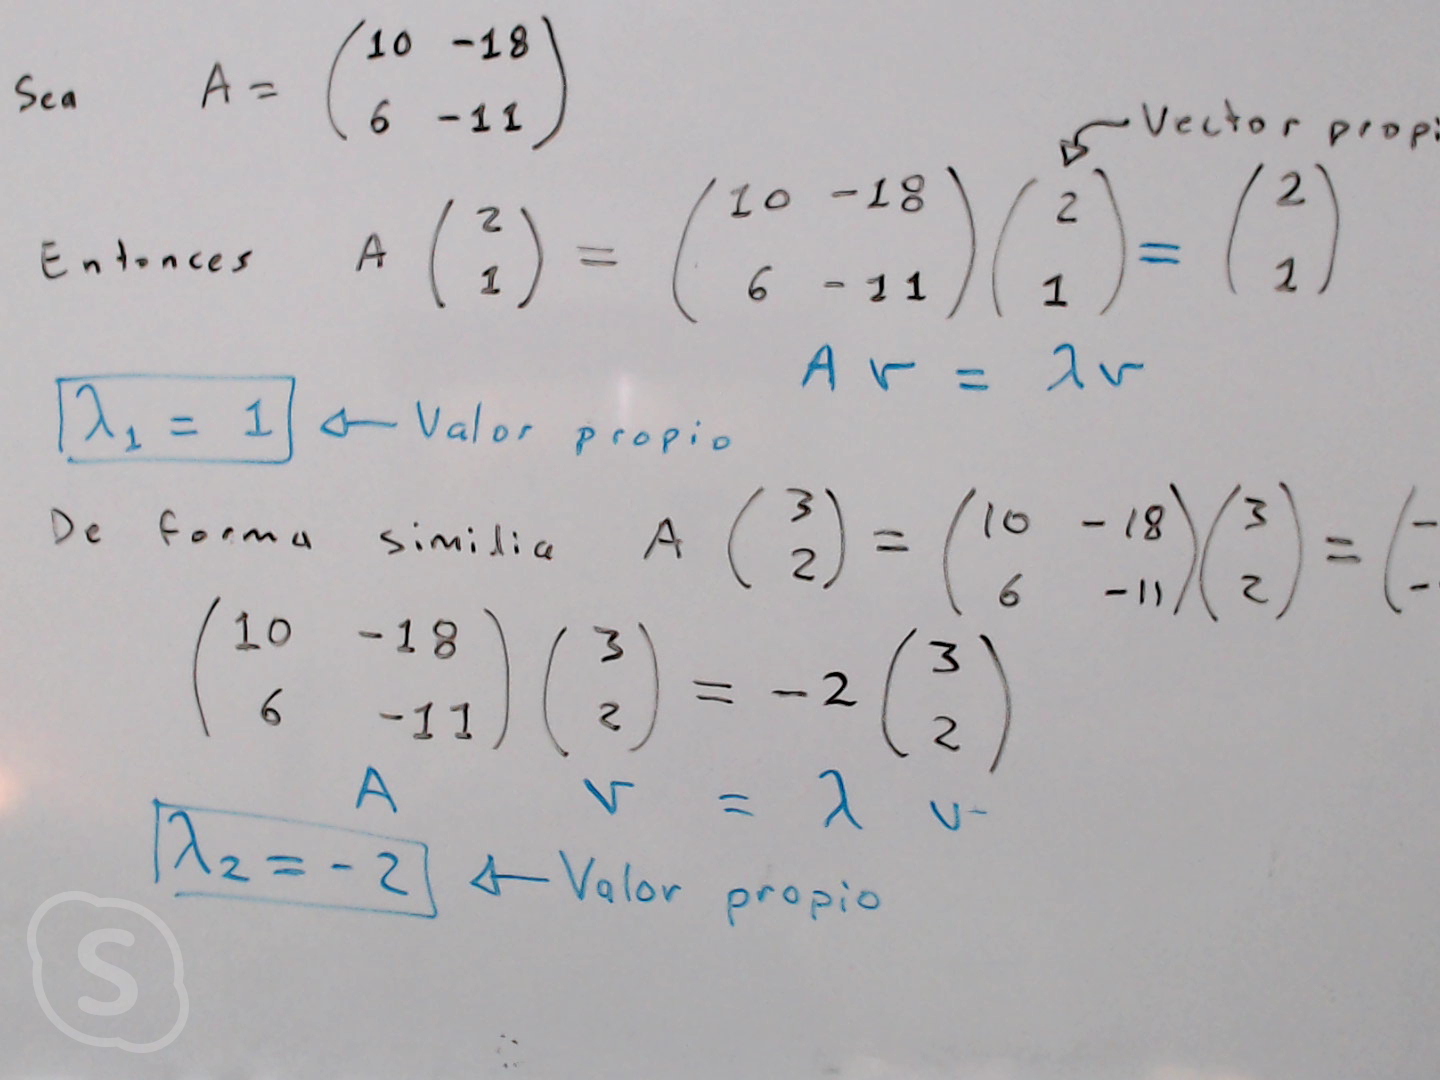 Sea A = (10 -18
6 -11)
Vector propi
Entonces A (2
1) = (10 -18
6 -11) (2
1) = (2
1)
A v = λ v
λ1 = 1 ← Valor propio
De forma similia A (3
2) = (10 -18
6 -11) (3
2) = (-
-
(10 -18
6 -11) (3
2) = -2 (3
2)
A v = λ v
λ2 = -2 ← Valor propio
S